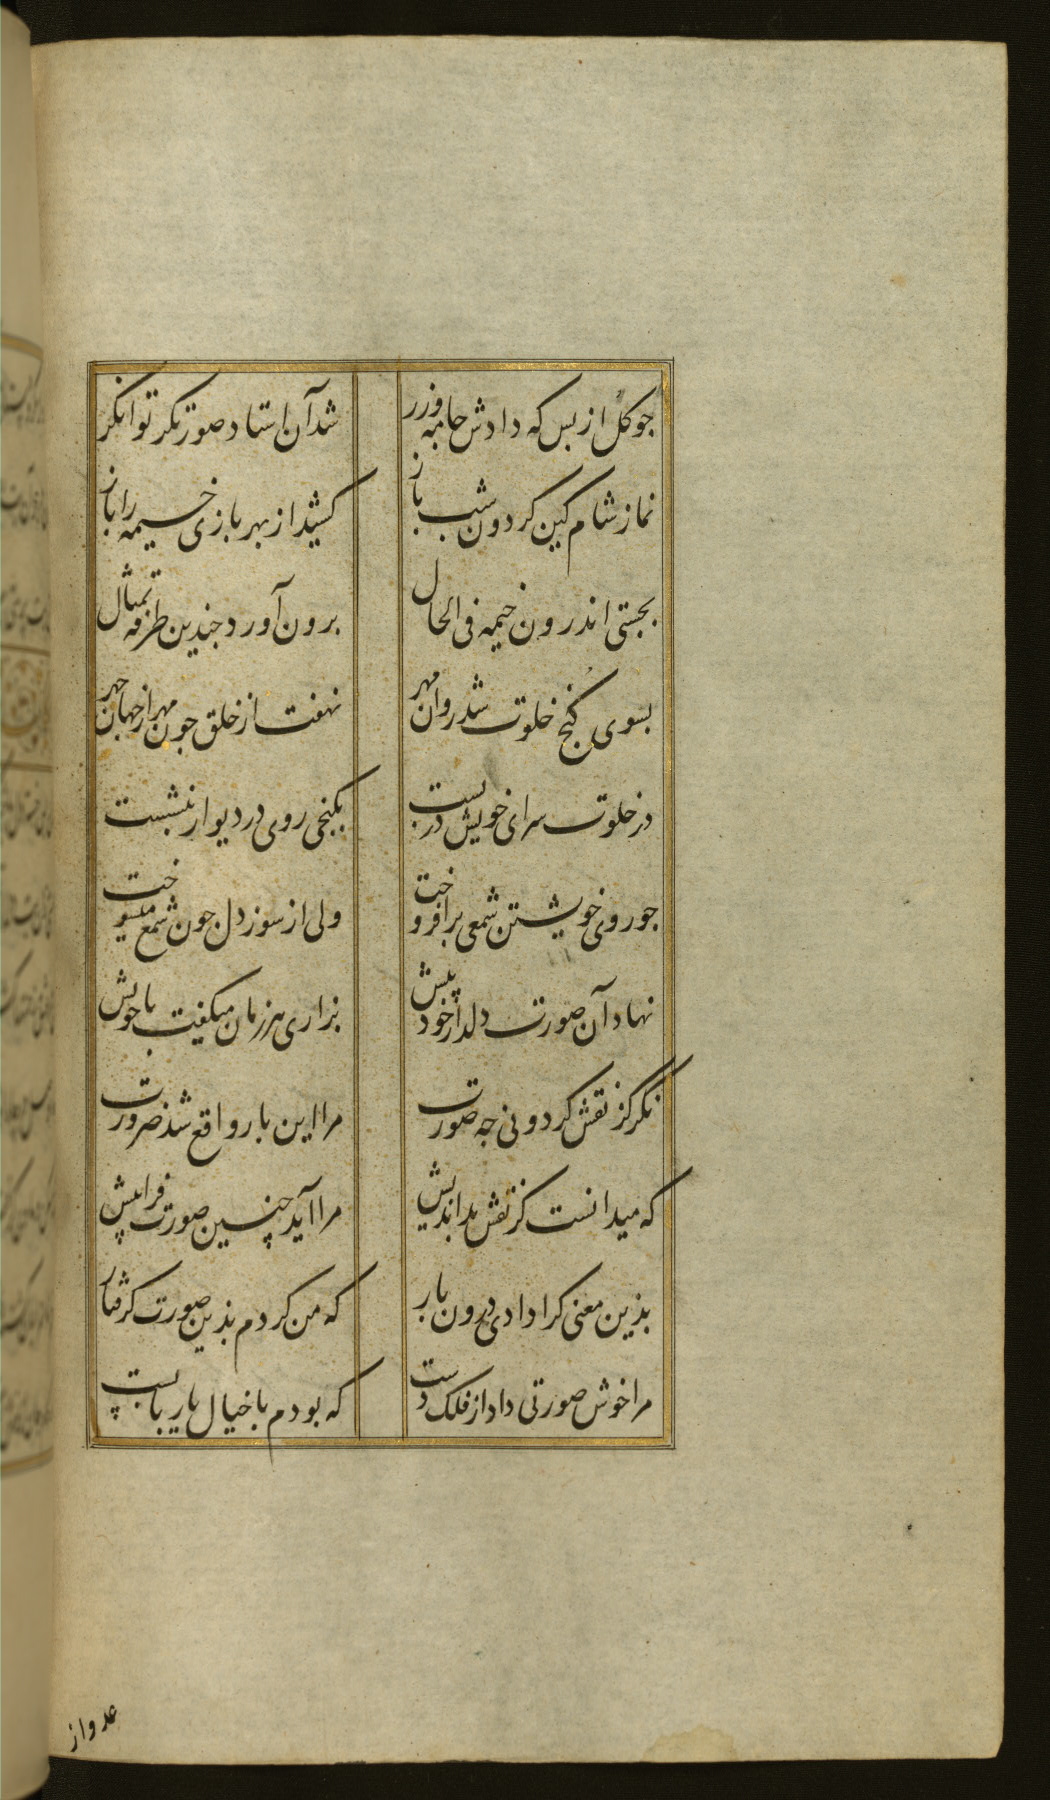 جو کل از بس که دادش جامه و زر
شد آن استاد صورتکر توانکر
نماز شام کین کردون شب باز
کشید از بهر بازی خیمه را باز
بجستی اندرون خیمه فی الحال
برون آورد جندین طرفه تمثال
بسوی کنج خلوت شد روان مهر
نهفت از خلق جون مهر از جهان جهر
در خلوت سرای خویش در بست
بکنجی روی در دیوار بنشست
جو روی خویشتن شمعی برافروخت
ولی از سوز دل جون شمع میسوخت
نهاد آن صورت دلدار خود پیش
بزاری هر زمان میکفت با خویش
نکر کز نقش کردونی جه صورت
مرا این بار واقع شد ضرورت
که میدانست کز نقش بداندیش
مرا آید چنین صورت فرا پیش
بذین معنی کرا دادی درون بار
که من کردم بذین صورت کرفتار
مرا خوش صورتی داد از فلک دست
که بودم با خیال یار پابست
عدو از